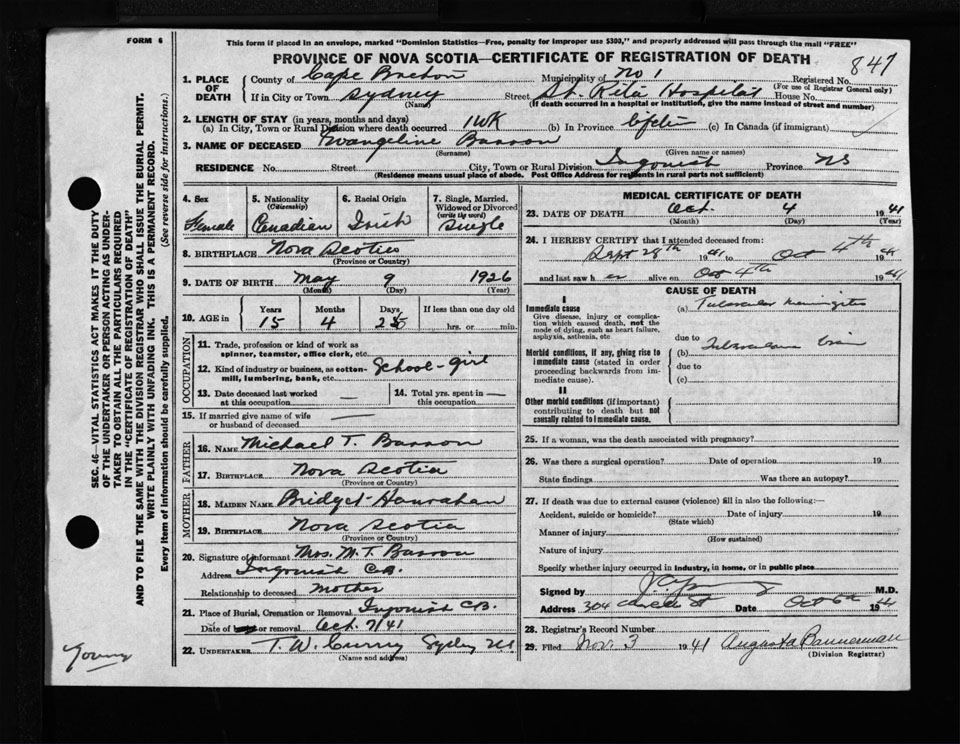 FORM 6
This form if placed in an envelope, marked "Dominion Statistics—Free, penalty for improper use $300," and properly addressed will pass through the mail "FREE"
PROVINCE OF NOVA SCOTIA—CERTIFICATE OF REGISTRATION OF DEATH
847
1. PLACE OF DEATH
County of Cape Breton Municipality of No 1 Registered No.
(For use of Registrar General only)
If in City or Town Sydney Street St. Rita Hospital House No.
(Name) (If death occurred in a hospital or institution, give the name instead of street and number)
2. LENGTH OF STAY (in years, months and days)
(a) In City, Town or Rural Division where death occurred 1 WK (b) In Province Life (c) In Canada (if immigrant)
3. NAME OF DECEASED Evangeline Barron
(Surname) (Given name or names)
RESIDENCE No. Street City, Town or Rural Division Ingonish Province NS
(Residence means usual place of abode. Post Office Address for residents in rural parts not sufficient)
4. Sex Female
5. Nationality (Citizenship) Canadian
6. Racial Origin Irish
7. Single, Married, Widowed or Divorced (write the word) Single
8. BIRTHPLACE Nova Scotia
(Province or Country)
9. DATE OF BIRTH May 9 1926
(Month) (Day) (Year)
10. AGE in Years Months Days If less than one day old
15 4 25 hrs. or min.
OCCUPATION
11. Trade, profession or kind of work as spinner, teamster, office clerk, etc.
12. Kind of industry or business, as cotton-mill, lumbering, bank, etc. School-girl
13. Date deceased last worked at this occupation —
14. Total yrs. spent in this occupation —
15. If married give name of wife or husband of deceased —
FATHER
16. NAME Michael T. Barron
17. BIRTHPLACE Nova Scotia
(Province or Country)
MOTHER
18. MAIDEN NAME Bridget Hanrahan
19. BIRTHPLACE Nova Scotia
(Province or Country)
20. Signature of informant Mrs. M. T. Barron
Address Ingonish C.B.
Relationship to deceased mother
21. Place of Burial, Cremation or Removal Ingonish C.B.
Date of burial or removal Oct. 7/41
22. UNDERTAKER T. W. Curry Sydney NS
(Name and address)
MEDICAL CERTIFICATE OF DEATH
23. DATE OF DEATH Oct. 4 1941
(Month) (Day) (Year)
24. I HEREBY CERTIFY that I attended deceased from:
Sept 28th 1941 to Oct 4th 1941
and last saw her alive on Oct 4th 1941
CAUSE OF DEATH
I
Immediate cause
Give disease, injury or complication which caused death, not the mode of dying, such as heart failure, asphyxia, asthenia, etc
(a) Tubercular Meningitis
due to
Morbid conditions, if any, giving rise to immediate cause (stated in order proceeding backwards from immediate cause).
(b) Tuberculous
due to
(c)
II
Other morbid conditions (if important) contributing to death but not causally related to immediate cause.
25. If a woman, was the death associated with pregnancy?
26. Was there a surgical operation? Date of operation 19
State findings Was there an autopsy?
27. If death was due to external causes (violence) fill in also the following:—
Accident, suicide or homicide? Date of injury 19
(State which)
Manner of injury
(How sustained)
Nature of injury
Specify whether injury occurred in industry, in home, or in public place
Signed by M.D.
Address 304 St Date Oct 6th 1941
28. Registrar's Record Number
29. Filed Nov. 3 1941 Augusta Bannerman
(Division Registrar)
SEC. 46—VITAL STATISTICS ACT MAKES IT THE DUTY
OF THE UNDERTAKER OR PERSON ACTING AS UNDER-
TAKER TO OBTAIN ALL THE PARTICULARS REQUIRED
IN THE "CERTIFICATE OF REGISTRATION OF DEATH"
AND TO FILE THE SAME WITH THE DIVISION REGISTRAR WHO SHALL ISSUE THE BURIAL PERMIT.
WRITE PLAINLY WITH UNFADING INK. THIS IS A PERMANENT RECORD.
Every item of information should be carefully supplied. (See reverse side for instructions.)
Young